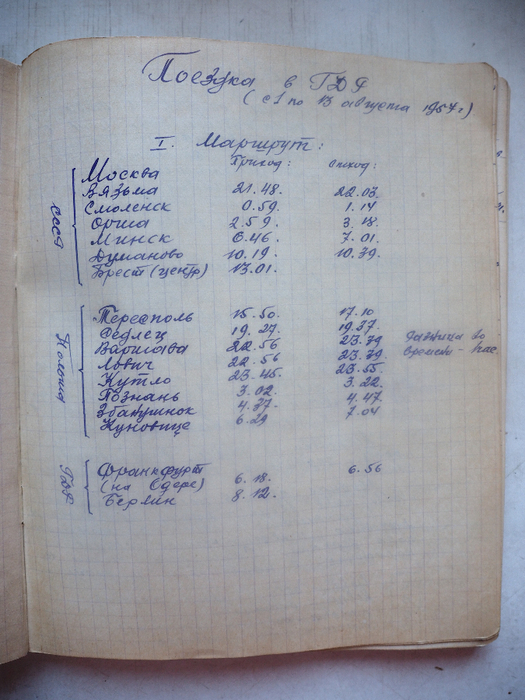 Поездка в ГДР
(с 1 по 13 августа 1957 г)
I. Маршрут:
Приход: Отход:
СССР
Москва
Вязьма 21.48. 22.03.
Смоленск 0.59. 1.14
Орша 2.59. 3.18.
Минск 6.46. 7.01.
Думаново 10.19. 10.39.
Брест (центр) 13.01.
Польша
Тересполь 15.50. 17.10
Седлец 19.27. 19.37.
Варшава 22.56 23.39 разница во
Лович 22.56 23.39 времени - час
Кутно 23.45. 23.55.
Познань 3.02. 3.22.
Збаншюнок 4.37. 4.47.
Куновице 6.29 7.04
ГДР
Франкфурт 6.56
(на Одере) 6.18.
Берлин 8.12.